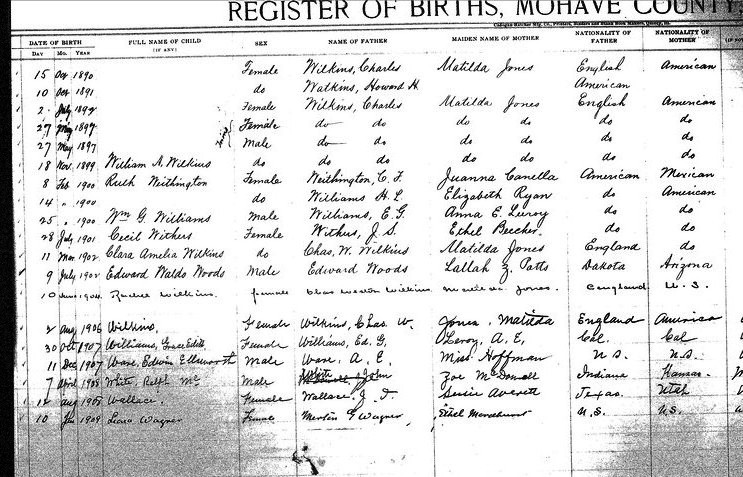 REGISTER OF BIRTHS, MOHAVE COUNTY,
DATE OF BIRTH FULL NAME OF CHILD SEX NAME OF FATHER MAIDEN NAME OF MOTHER NATIONALITY OF FATHER NATIONALITY OF MOTHER
DAY MO. YEAR (IF ANY)
15 Oct 1890 Female Wilkins, Charles Matilda Jones English American
10 Oct 1891 do Watkins, Howard H. American
2 July 1892 Female Wilkins, Charles Matilda Jones English American
27 May 1897 Female do do do do do do
27 May 1897 Male do do do do do do
18 Nov. 1899 William A. Wilkins do do do do do do do
8 Feb 1900 Ruth Weithington Female Weithington, C. F. Juanna Canella American Mexican
14 " 1900 do Williams H. L. Elizabeth Ryan do American
25 " 1900 Wm G. Williams Male Williams, E. G. Anna E. Leroy do do
28 July 1901 Cecil Withers Female Withers, J. S. Ethel Beecher. do do
11 Mar 1902 Clara Amelia Wilkins do Chas. W. Wilkins Matilda Jones England do
9 July 1902 Edward Waldo Woods Male Edward Woods Lallah Z. Patts Dakota Arizona
10 1904 Rachel Wilkins. female Chas Weston Wilkins Matilda Jones. England U.S.
2 Aug 1906 Wilkins. Female Wilkins, Chas W. Jones, Matilda England America
30 Oct 1907 Williams, Grace Edith Female Williams, Ed. G. Leroy, A. E, Cal. Cal
11 Dec 1907 Ware, Edwin Ellsworth Male Ware, A. E. Miss Hoffman U.S. U.S.
7 April 1908 White Ralph Mc Male White John Zoe McDonell Indiana Kansas.
12 Aug 1908 Wallace. Female Wallace, J. D. Susie Averett Texas. Utah
10 Jan 1909 Leora Wagner Female G Wagner Ethel U.S. U.S.